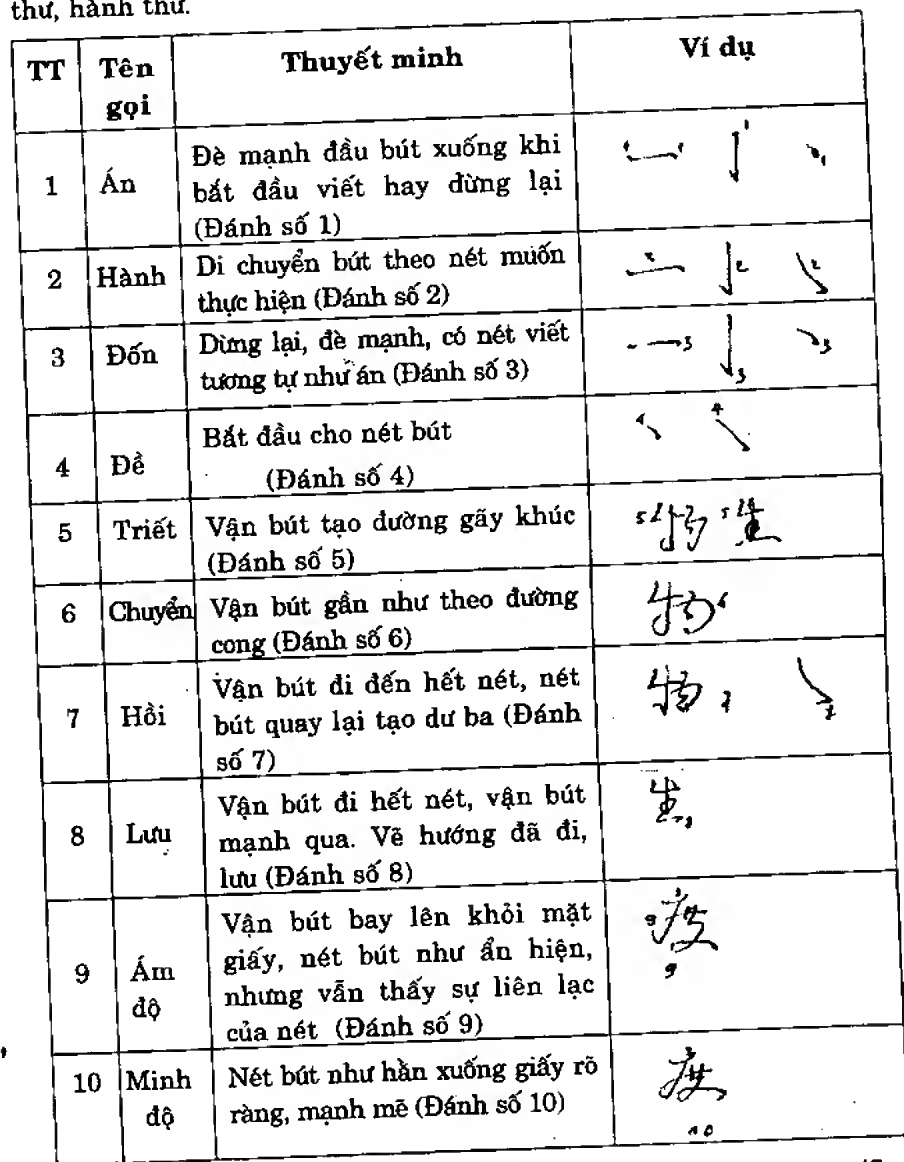 thư, hành thư.
TT Tên gọi Thuyết minh Ví dụ
1 Án Đè mạnh đầu bút xuống khi
bắt đầu viết hay dừng lại
(Đánh số 1)
2 Hành Di chuyển bút theo nét muốn
thực hiện (Đánh số 2)
3 Đốn Dừng lại, đè mạnh, có nét viết
tương tự như án (Đánh số 3)
4 Đề Bắt đầu cho nét bút
(Đánh số 4)
5 Triết Vận bút tạo đường gãy khúc
(Đánh số 5)
6 Chuyển Vận bút gần như theo đường
cong (Đánh số 6)
7 Hồi Vận bút đi đến hết nét, nét
bút quay lại tạo dư ba (Đánh
số 7)
8 Lưu Vận bút đi hết nét, vận bút
mạnh qua. Vẽ hướng đã đi,
lưu (Đánh số 8)
9 Ám độ Vận bút bay lên khỏi mặt
giấy, nét bút như ẩn hiện,
nhưng vẫn thấy sự liên lạc
của nét (Đánh số 9)
10 Minh độ Nét bút như hằn xuống giấy rõ
ràng, mạnh mẽ (Đánh số 10)